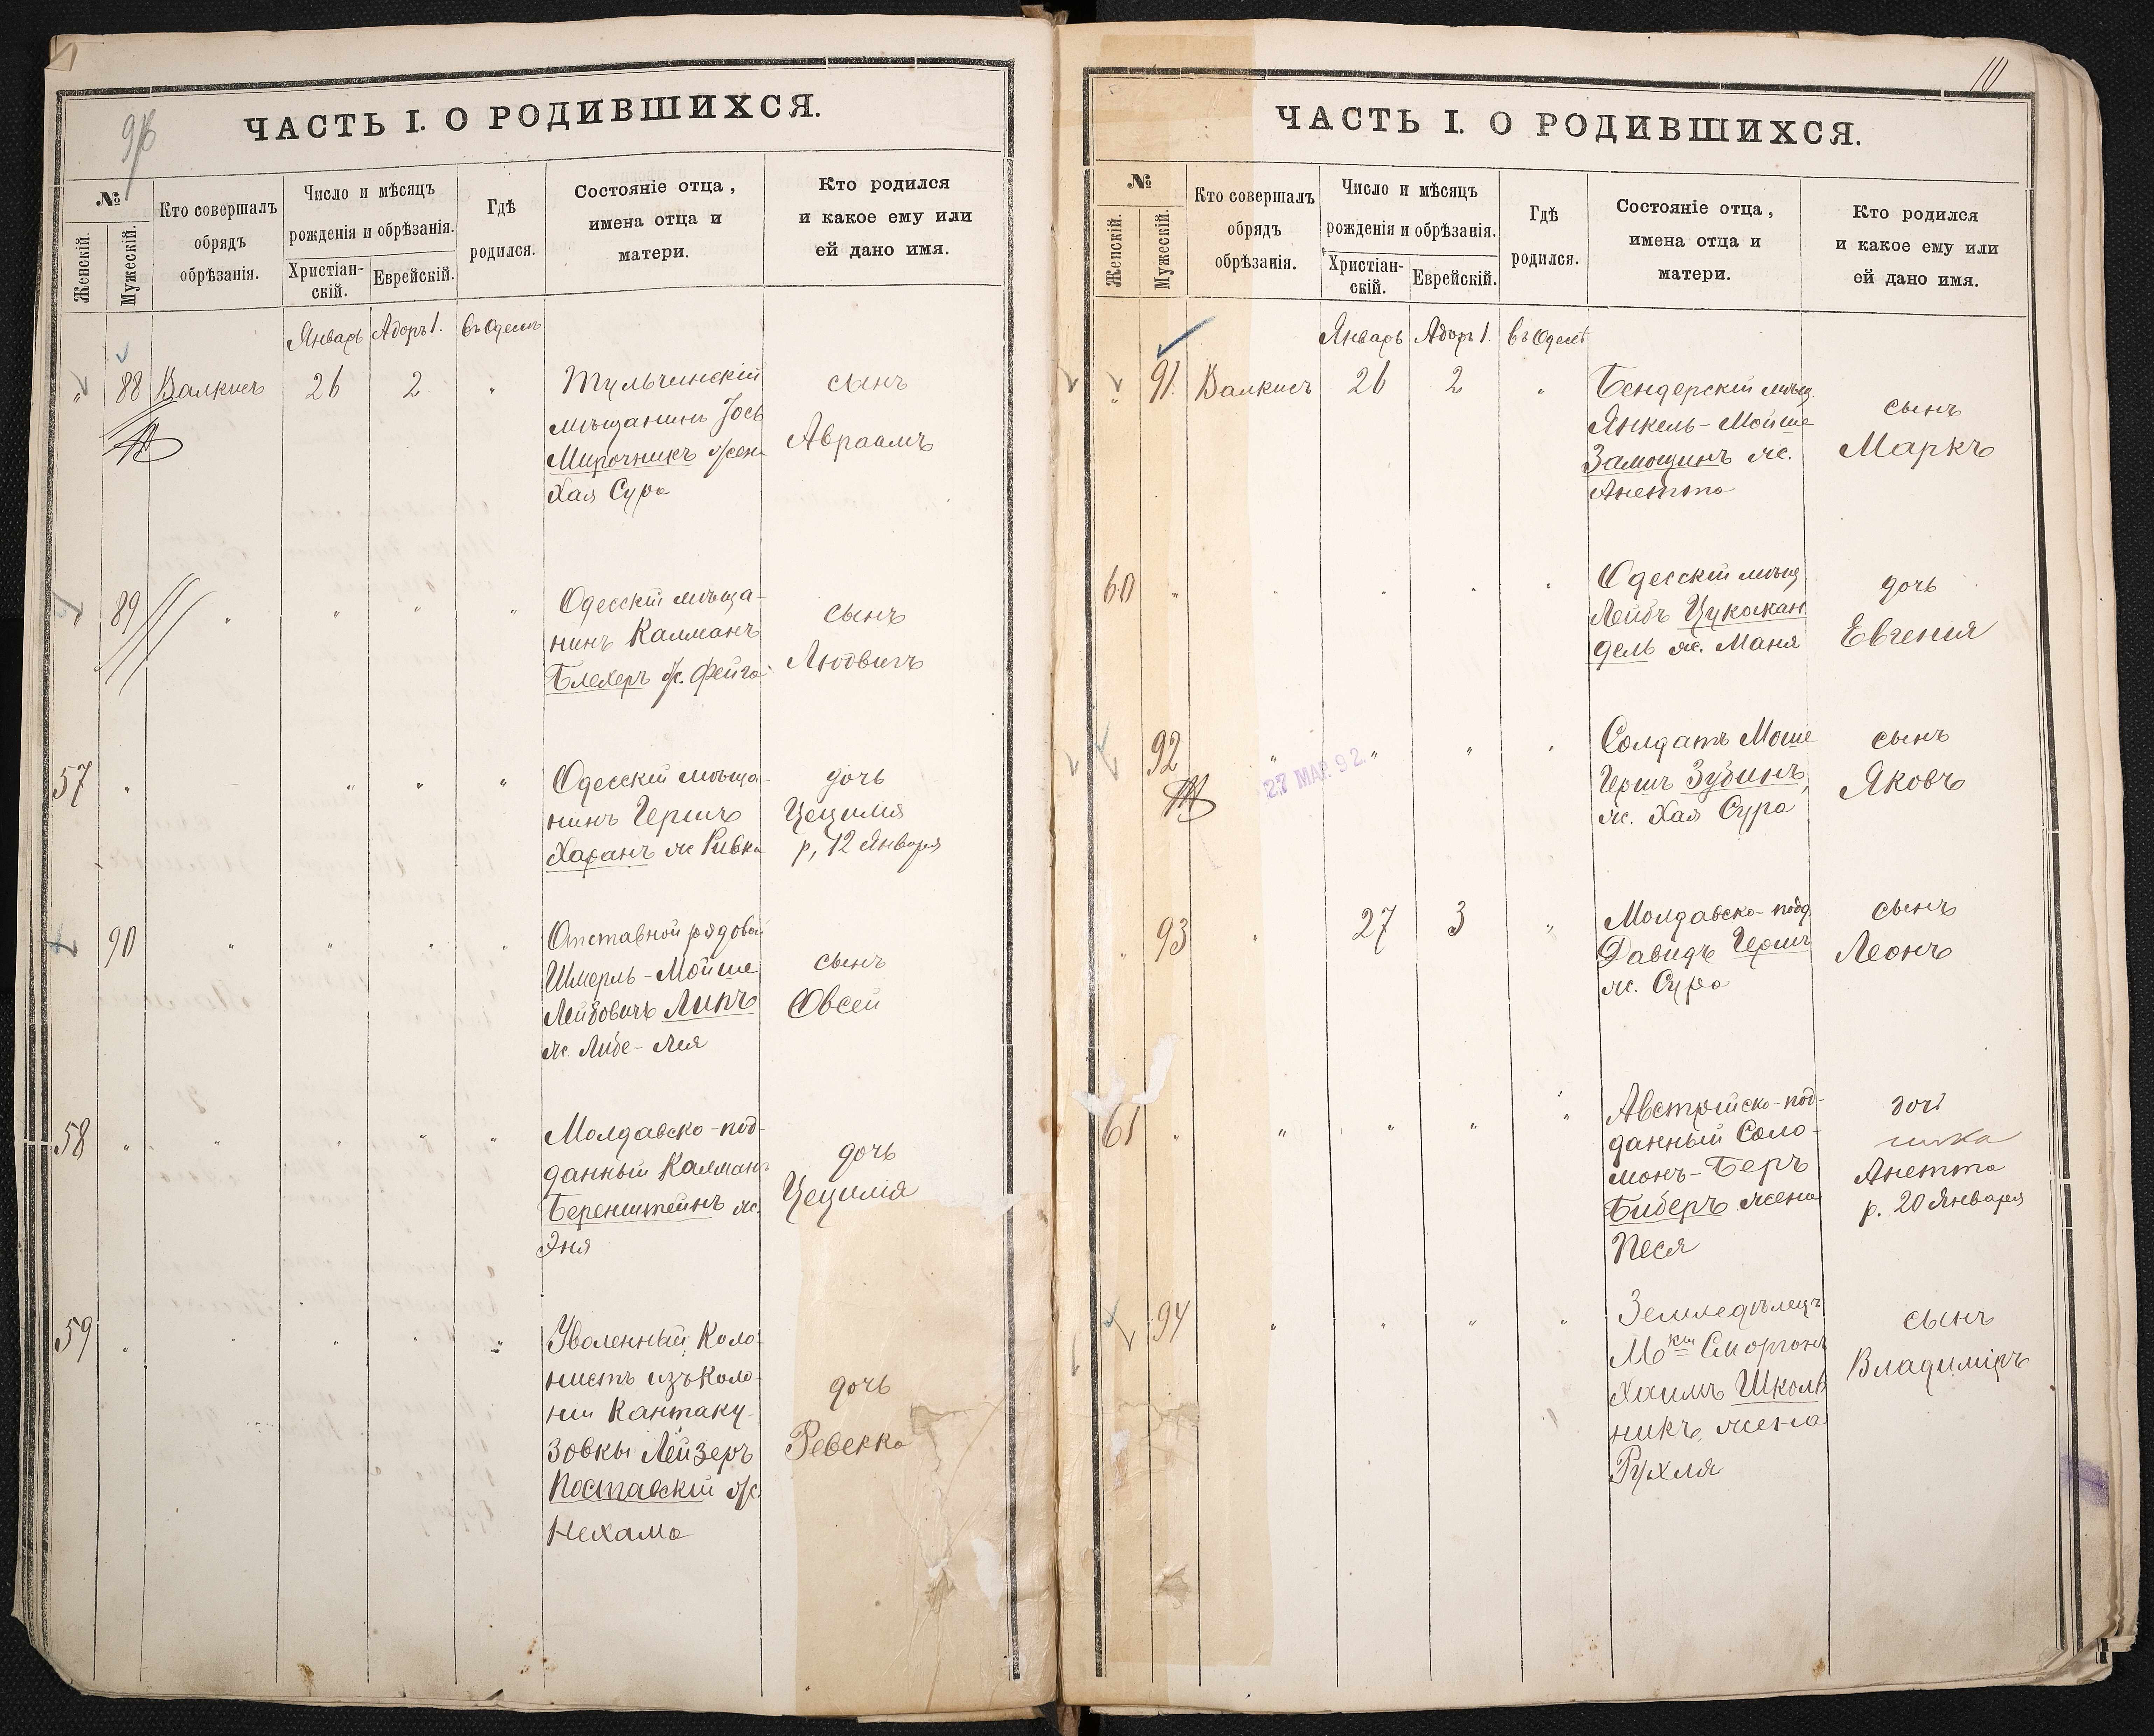 ЧАСТЬ I. О РОДИВШИХСЯ.
№
Женскій.
Мужескій.
Кто совершалъ
обрядъ
обрѣзанія.
Число и мѣсяцъ
рожденія и обрѣзанія.
Христіан-
скій.
Еврейскій.
Гдѣ
родился.
Состояніе отца,
имена отца и
матери.
Кто родился
и какое ему или
ей дано имя.
Январь Адаръ 1. въ Одессѣ
" 88 Валкисъ 26 2 "
Тульчинскій
мѣщанинъ Іось
Мирочникъ жена
Хая Сура
сынъ
Авраамъ
" 89 " " " "
Одесскій мѣща-
нинъ Калманъ
Блехеръ ж. Фейга
сынъ
Людвигъ
57 " " " "
Одесскій мѣща-
нинъ Гершъ
Харанъ ж Ривка
дочь
Цецилія
р, 12 Января
90 " " " "
Отставной рядовой
Шмерль-Мойше
Лейбовичъ Липъ
ж. Либе-Лея
сынъ
Овсей
58 " " " " "
Молдавско-под-
данный Калманъ
Беренштейнъ ж.
Эня
дочь
Цецилія
59 " " " " "
Уволенный Коло-
нистъ изъ Коло-
ніи Кантаку-
зовки Лейзеръ
Поставскій ж.
Нехама
дочь
Ревекка
10
ЧАСТЬ I. О РОДИВШИХСЯ.
№
Женскій.
Мужескій.
Кто совершалъ
обрядъ
обрѣзанія.
Число и мѣсяцъ
рожденія и обрѣзанія.
Христіан-
скій.
Еврейскій.
Гдѣ
родился.
Состояніе отца,
имена отца и
матери.
Кто родился
и какое ему или
ей дано имя.
Январь Адаръ 1. въ Одессѣ
" 91. Валкисъ 26 2 "
Бендерскій мѣщ.
Янкель-Мойше
Замощинъ ж.
Анетта
сынъ
Маркъ
60 " " " " "
Одесскій мѣщ
Лейбъ Цукокан
дель ж. Маня
дочь
Евгенія
92 " " " "
27 МАР. 92
Солдатъ Моше
Гершъ Зубинъ,
ж. Хая Сура
сынъ
Яковъ
" 93 " 27 3 "
Молдавско-подд
Давидъ Гершъ
ж. Сура
сынъ
Леонъ
61 " " " " "
Австрійско-под-
данный Соло-
монъ-Беръ
Биберъ жена
Песя
дочь
Анетта
р. 20 Января
94 " " " "
Земледѣлецъ
Мки Сморгонъ
Хаимъ Школь
никъ, жена
Рухля
сынъ
Владиміръ